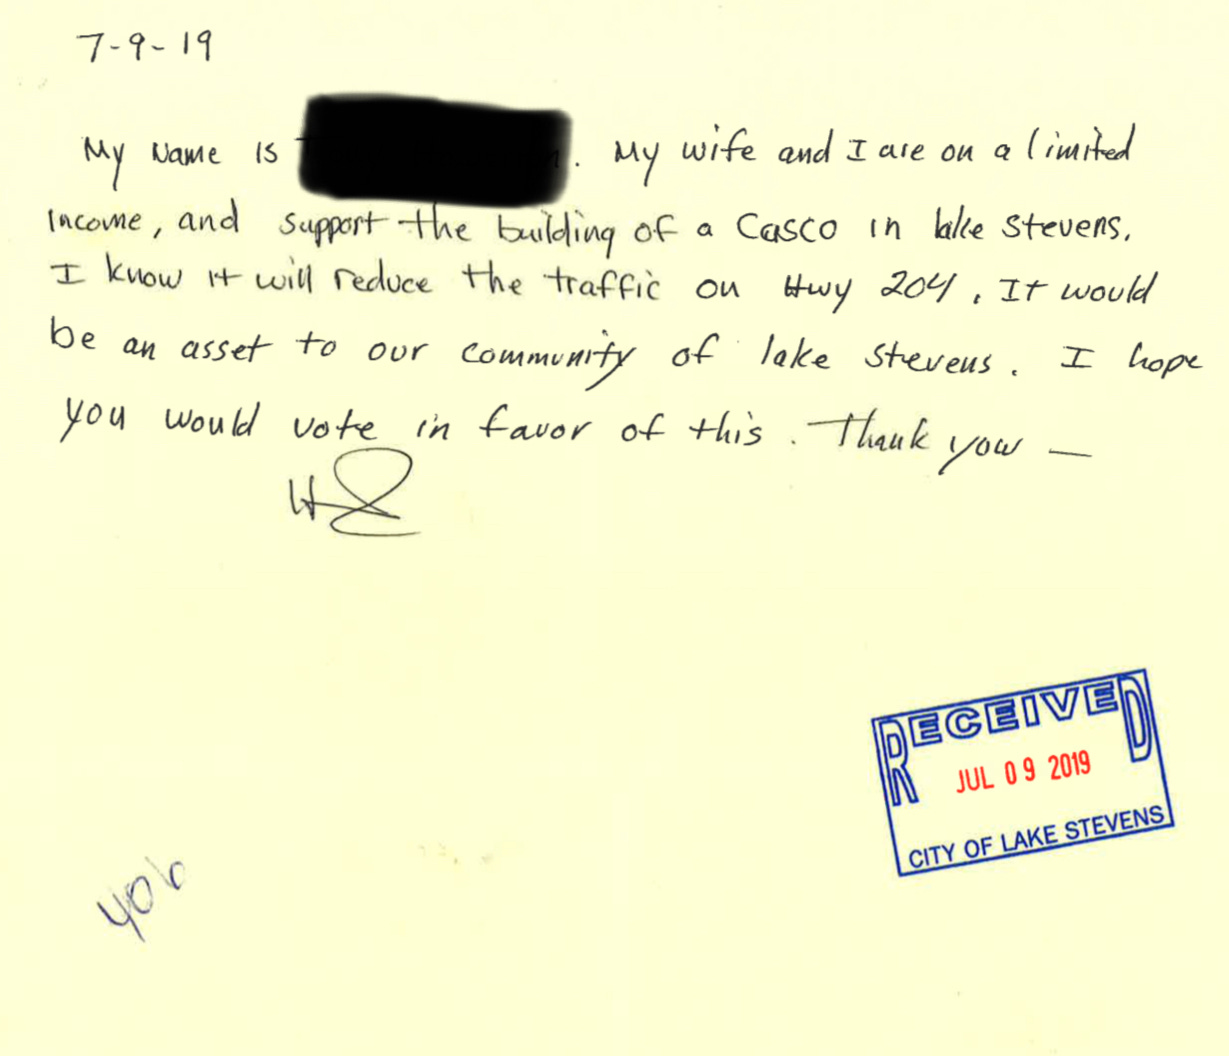 7-9-19
My Name is . My wife and I are on a limited
income, and support the building of a Casco in lake Stevens.
I know it will reduce the traffic on Hwy 204. It would
be an asset to our community of lake Stevens. I hope
you would vote in favor of this. Thank you —
RECEIVED
JUL 09 2019
CITY OF LAKE STEVENS
406